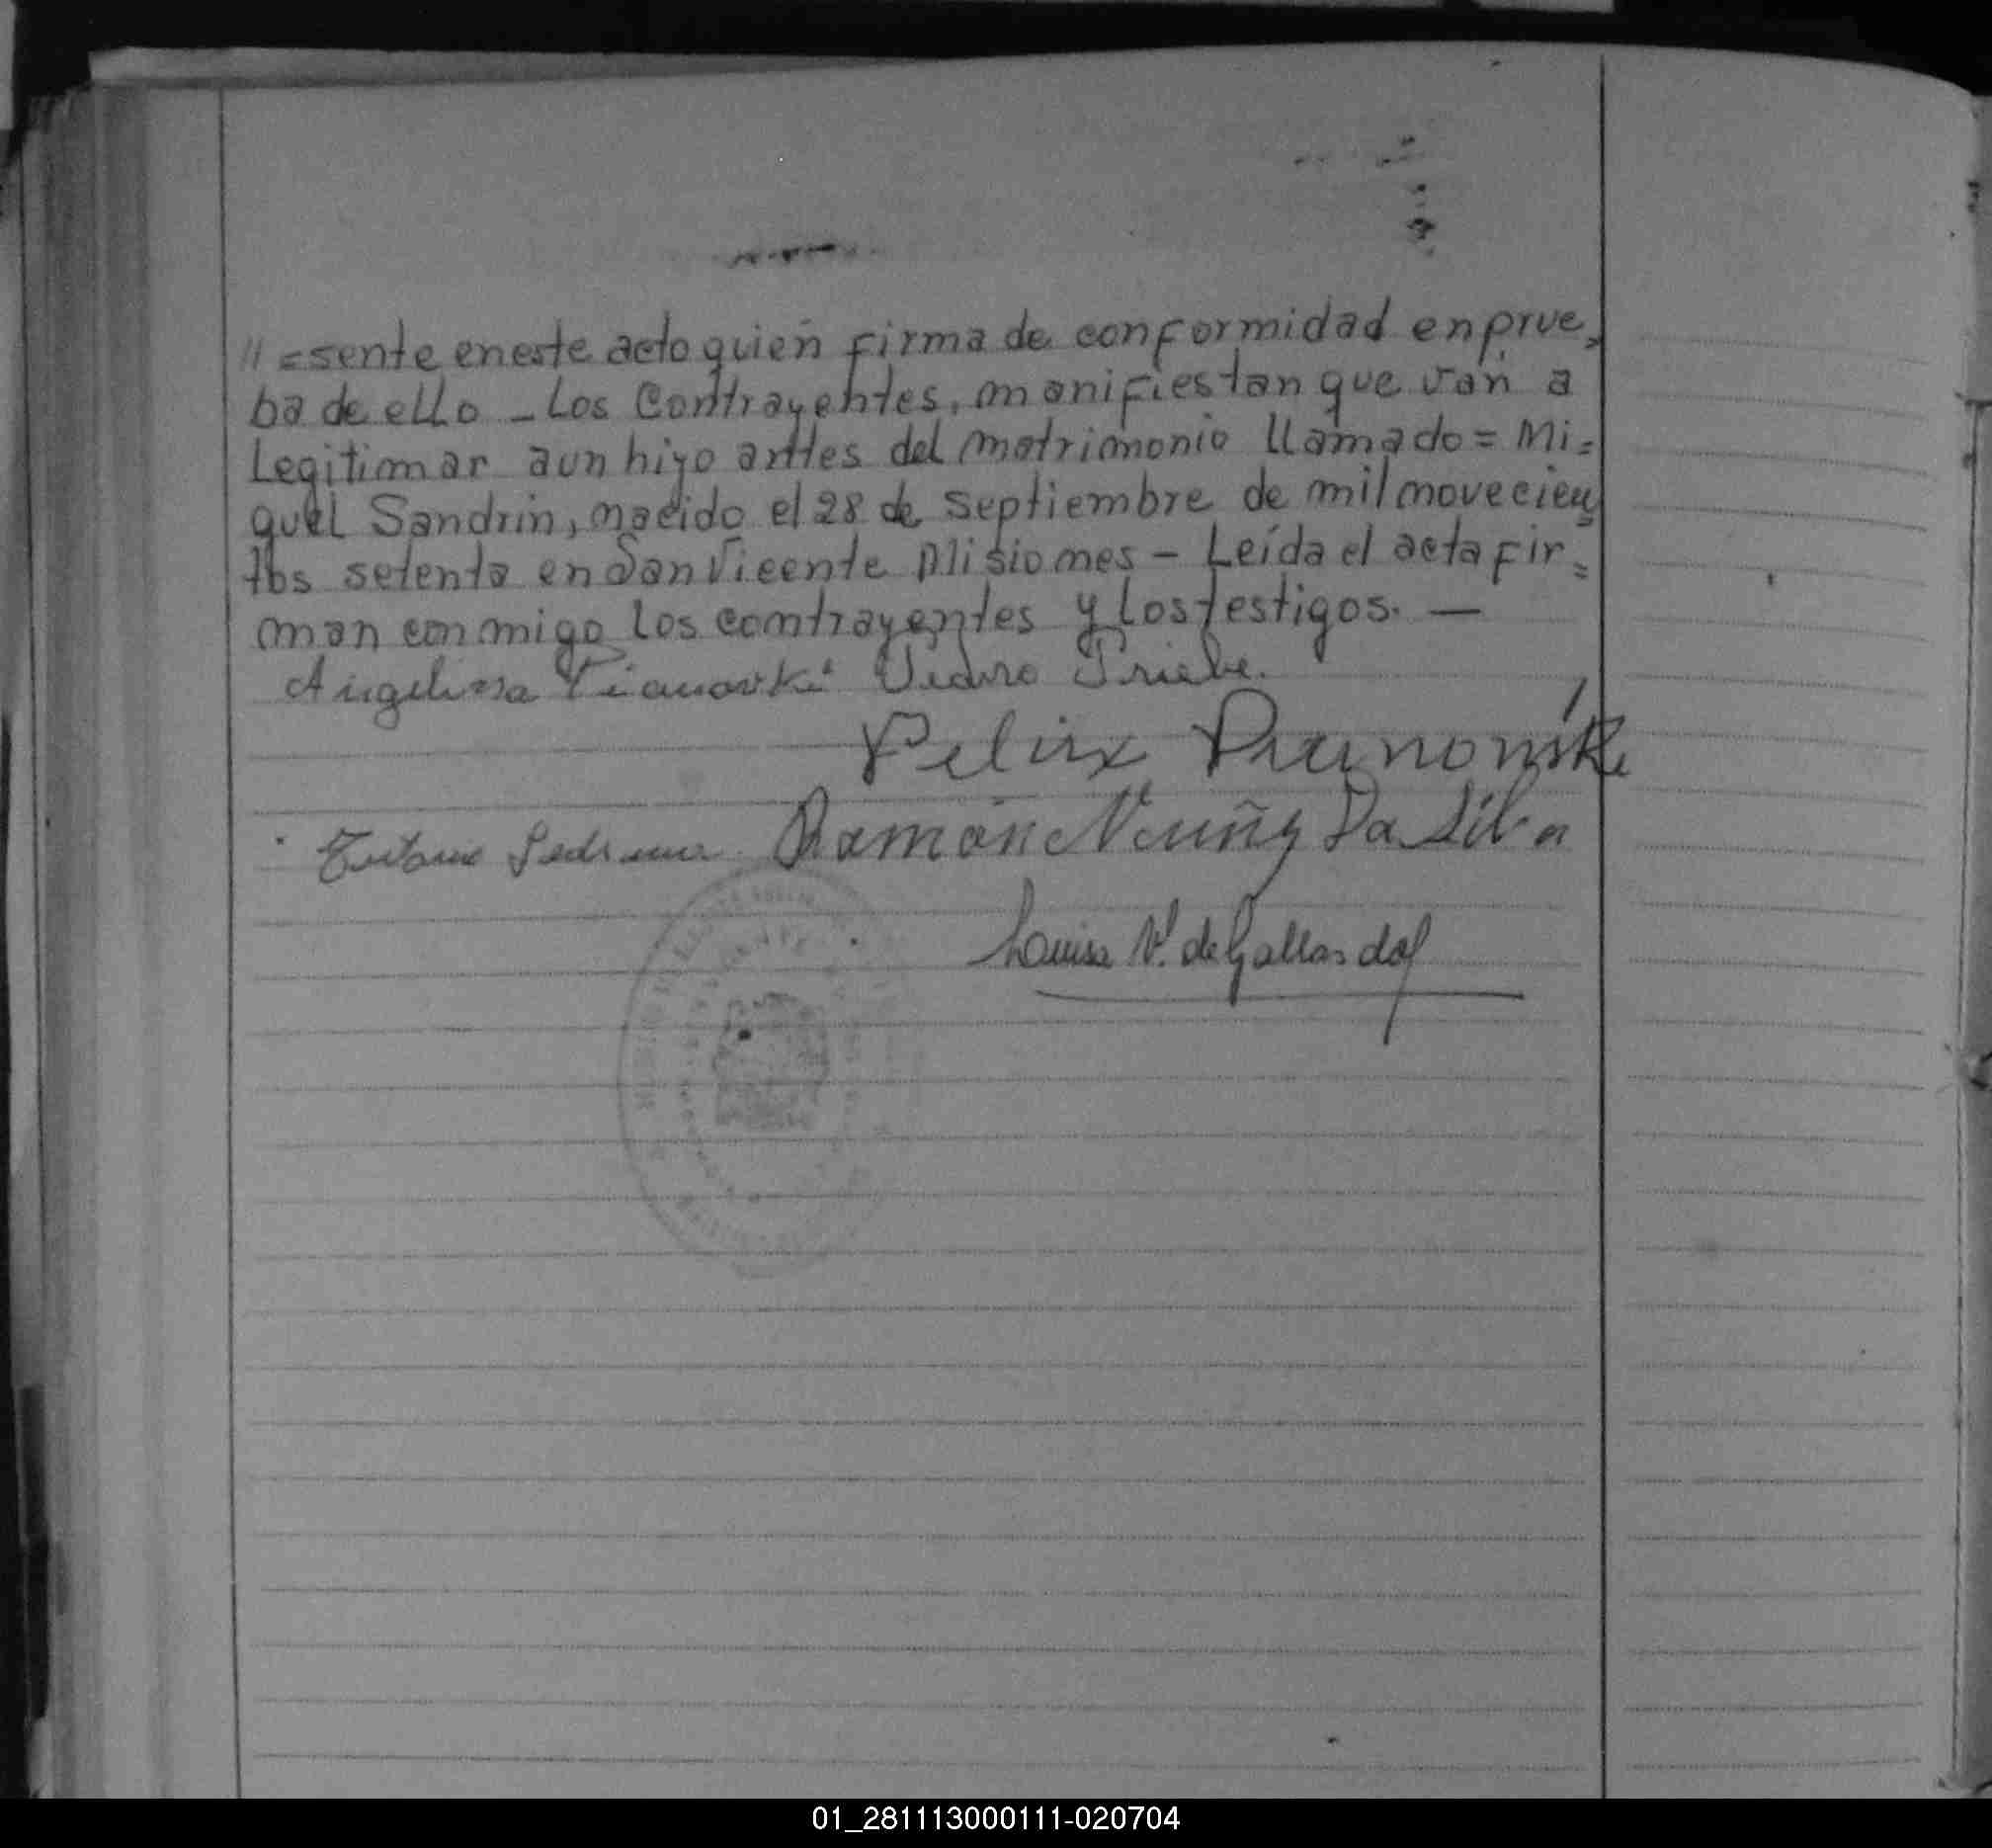 11 = sente en este acto quien firma de conformidad en prue=
ba de ello - Los Contrayentes, manifiestan que van a
Legitimar a un hijo antes del matrimonio llamado = Mi=
guel Sandrin, nacido el 28 de septiembre de mil novecien=
tos setenta en San Vicente Misiones - Leída el acta fir=
man conmigo los contrayentes y los testigos. —
Angelina Pianovski Pedro Priebe.
Felix
Ramón Da Silva
Luisa V. de Gallardo
01_281113000111-020704